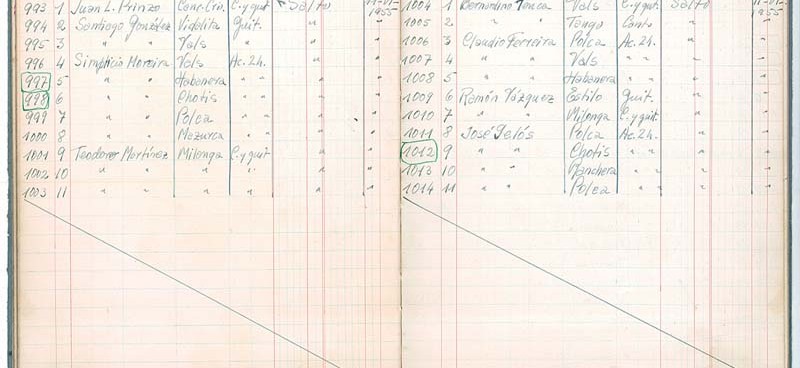 993 1 Juan L. Prinzo Canc. Cri. C. y guit Salto 11-01-1955
994 2 Santiago González Vidalita Guit. " "
995 3 " " Vals " " "
996 4 Simplicio Moreira Vals Ac. 2h. " "
997 5 " " Habanera " " " "
998 6 " " Chotis " " " "
999 7 " " Polca " " " "
1000 8 " " Mazurca " " " "
1001 9 Teodoro Martínez Milonga C. y guit " "
1002 10 " " " " " "
1003 11 " " " " " "
1004 1 Bernardino Vals C. y guit. Salto 11-01-1955
1005 2 " " Tango Canto " "
1006 3 Claudio Ferreira Polca Ac. 2h. " "
1007 4 " " Vals " " " "
1008 5 " " Habanera " " "
1009 6 Ramón Vázquez Estilo Guit. " "
1010 7 " " Milonga C. y guit " "
1011 8 José Polca Ac. 2h. " "
1012 9 " " Chotis " " " "
1013 10 " " Ranchera " " " "
1014 11 " " Polca " " "